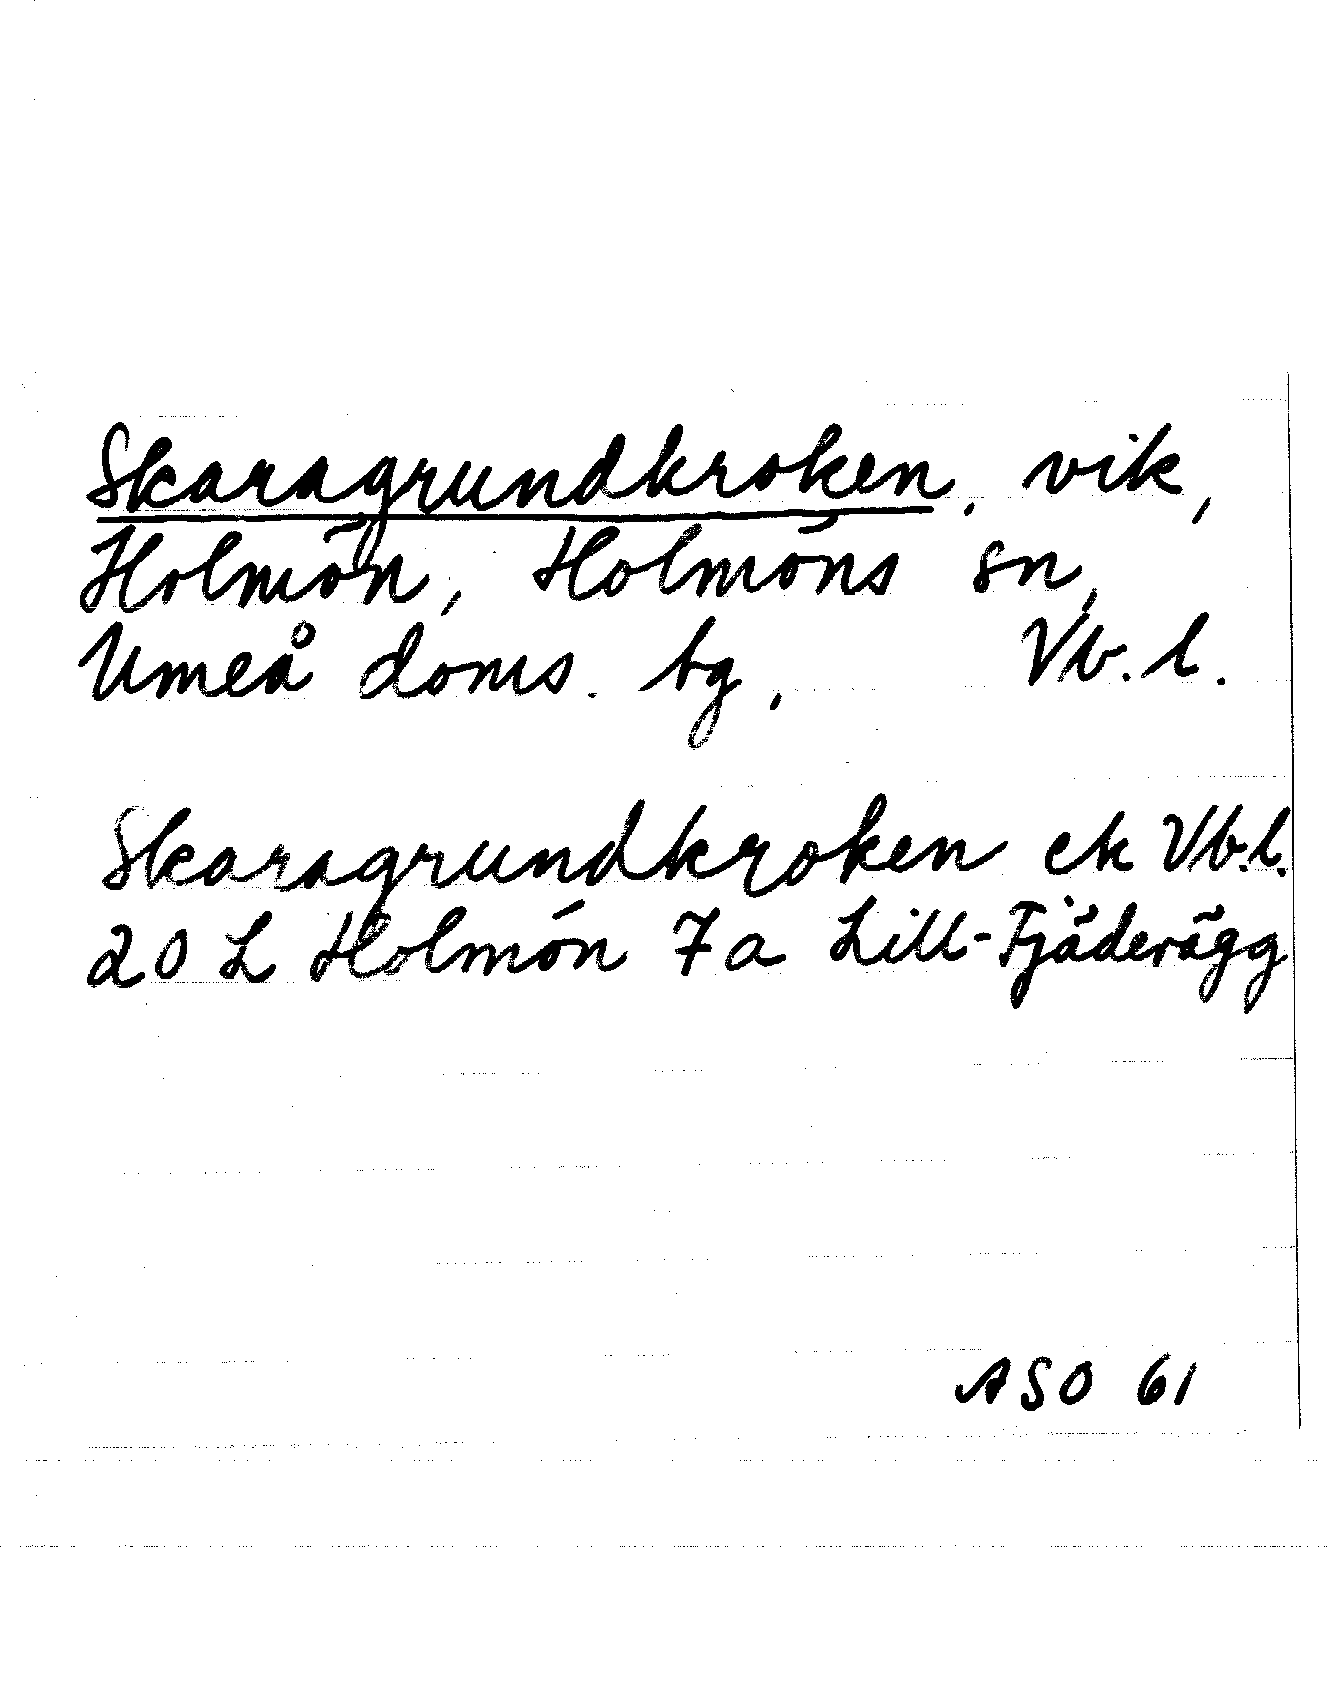 Skaragrundkroken, vik,
Holmön, Holmöns sn,
Umeå doms. tg, Vb. l.
Skaragrundkroken ek Vb.l.
20 L Holmön 7a Lill-Fjäderägg
ASO 61